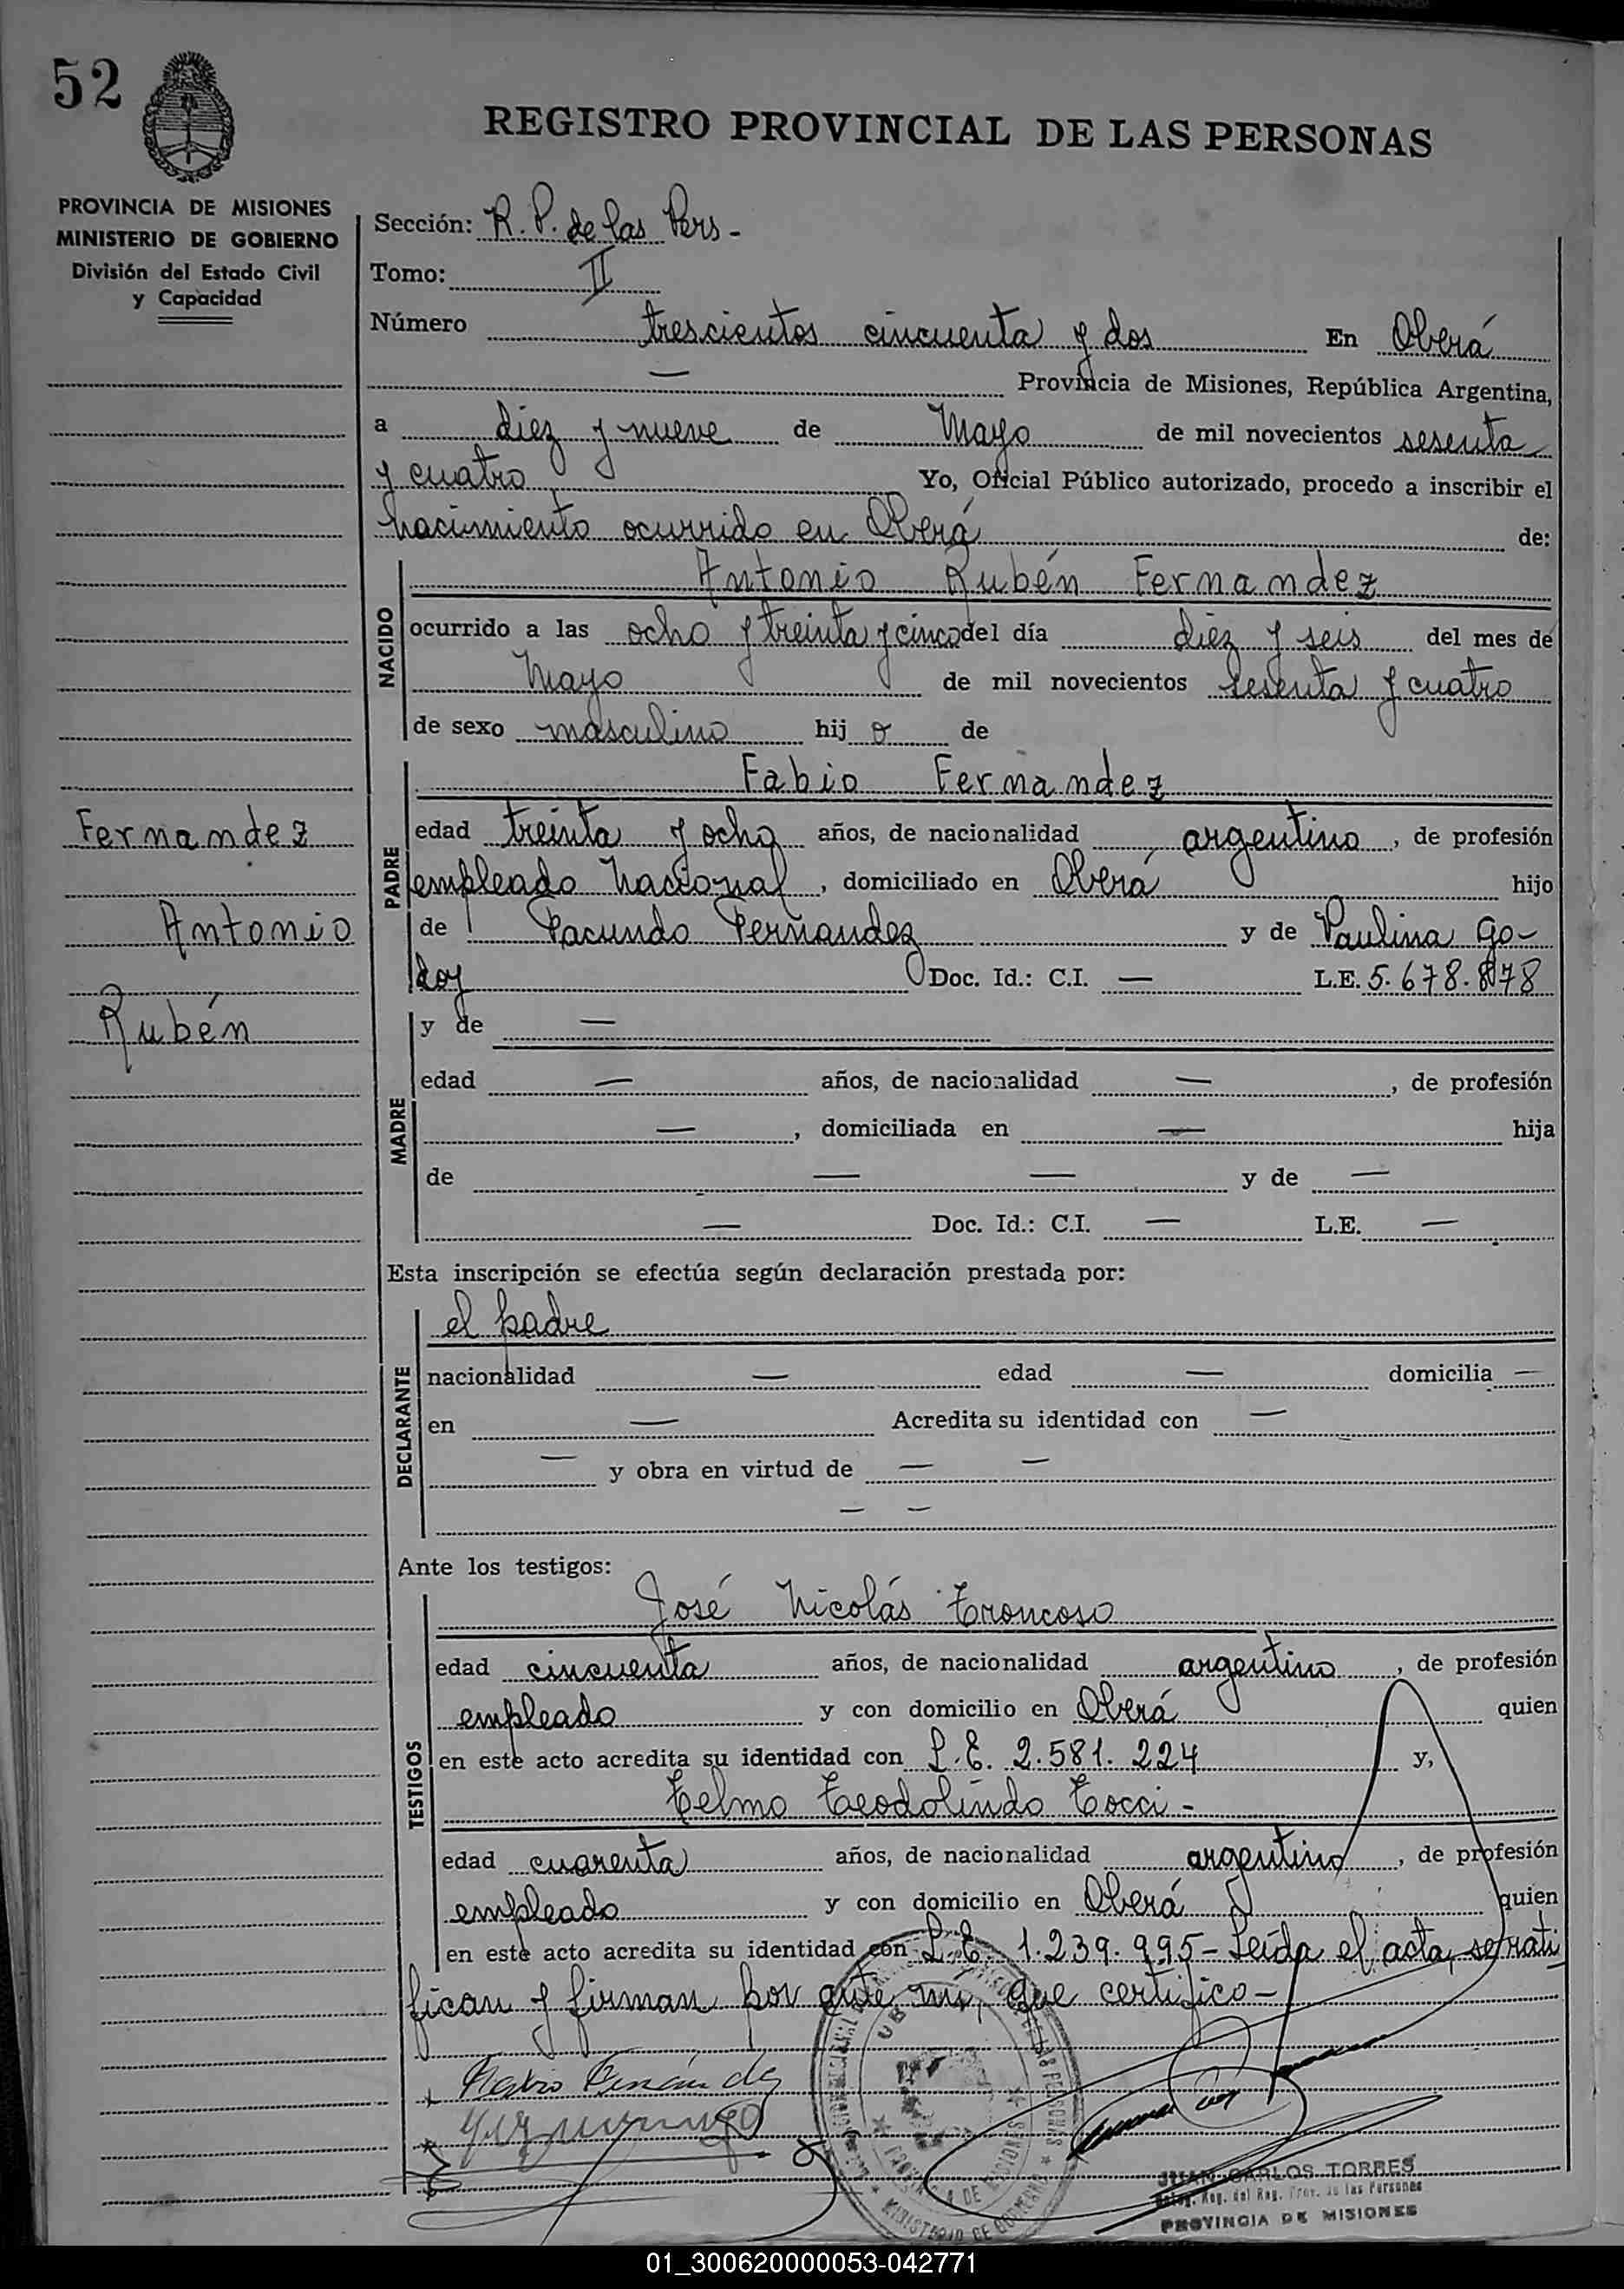 52
REGISTRO PROVINCIAL DE LAS PERSONAS
PROVINCIA DE MISIONES
MINISTERIO DE GOBIERNO
División del Estado Civil
y Capacidad
Sección: R. P. de las Pers -
Tomo: II
Número trescientos cincuenta y dos En Oberá
— Provincia de Misiones, República Argentina,
a diez y nueve de Mayo de mil novecientos sesenta
y cuatro Yo, Oficial Público autorizado, procedo a inscribir el
nacimiento ocurrido en Oberá de:
NACIDO
Antonio Rubén Fernandez
ocurrido a las ocho y treinta y cinco del día diez y seis del mes de
Mayo de mil novecientos sesenta y cuatro
de sexo masculino hij o de
PADRE
Fabio Fernandez
Fernandez
Antonio
Rubén
edad treinta y ocho años, de nacionalidad argentino, de profesión
empleado Nacional, domiciliado en Oberá hijo
de Facundo Fernandez y de Paulina Go-
doy Doc. Id.: C.I. — L.E. 5.678.878
MADRE
y de —
edad — años, de nacionalidad —, de profesión
—, domiciliada en — hija
de — — y de —
— Doc. Id.: C.I. — L.E. —
Esta inscripción se efectúa según declaración prestada por:
DECLARANTE
el padre
nacionalidad — edad — domicilia —
en — Acredita su identidad con —
— y obra en virtud de — —
— —
Ante los testigos:
TESTIGOS
José Nicolás Troncoso
edad cincuenta años, de nacionalidad argentino, de profesión
empleado y con domicilio en Oberá quien
en este acto acredita su identidad con L.E. 2.581.224 y,
Telmo Teodolindo Tocci -
edad cuarenta años, de nacionalidad argentino, de profesión
empleado y con domicilio en Oberá quien
en este acto acredita su identidad con L.E. 1.239.995 - Leída el acta, se rati
fican y firman por ante mí, que certifico -
JUAN CARLOS TORRES
Deleg. Reg. del Reg. Prov. de las Personas
PROVINCIA DE MISIONES
01_300620000053-042771